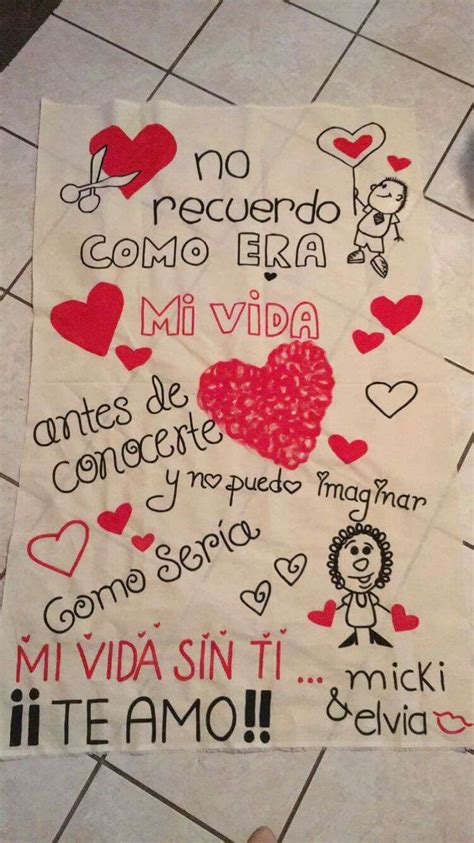 no
recuerdo
COMO ERA
Mi ViDA
antes de
conocerte
y no puedo imaginar
Como Sería
MI VIDA SIN TI ...
¡¡TE AMO!!
micki
& elvia